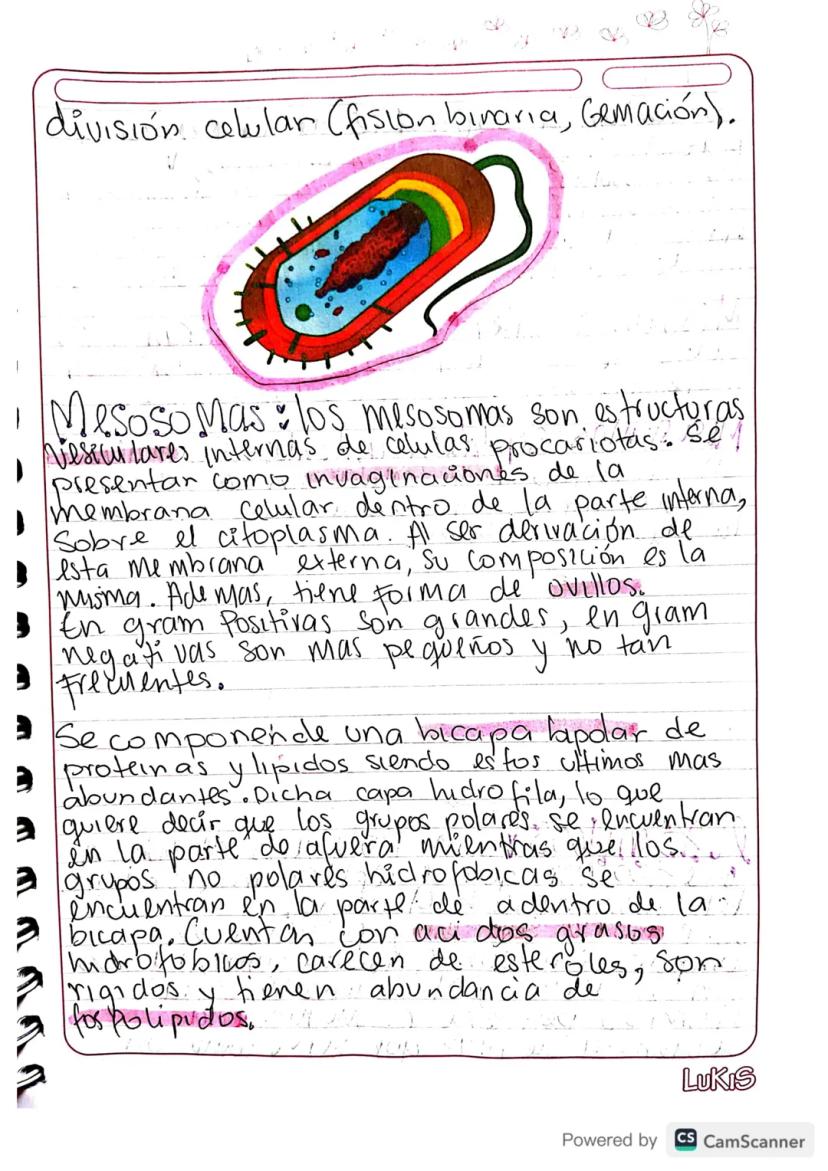 división celular (fision binaria, Gemación).
Mesosomas: los mesosomas son estructuras
vesiculares internas de celulas procariotas. Se
presentan como invaginaciones de la
membrana celular dentro de la parte interna,
Sobre el citoplasma. Al ser derivación de
esta membrana externa, su composición es la
misma. Ademas, tiene forma de ovillos.
En gram Positivas son grandes, en gram
negativas son mas pequeños y no tan
frecuentes.
Se componen de una bicapa lapolar de
proteinas y lipidos siendo estos ultimos mas
abundantes. Dicha capa hidrofila, lo que
quiere decir que los grupos polares se encuentran
en la parte de afuera mientras que los
grupos no polares hidrofobicas se
encuentran en la parte de adentro de la
bicapa. Cuentan con acidos grasos
hidrofobicos, carecen de esteroles, son
rigidos y tienen abundancia de
fospolipidos.
LUKIS
Powered by CS CamScanner